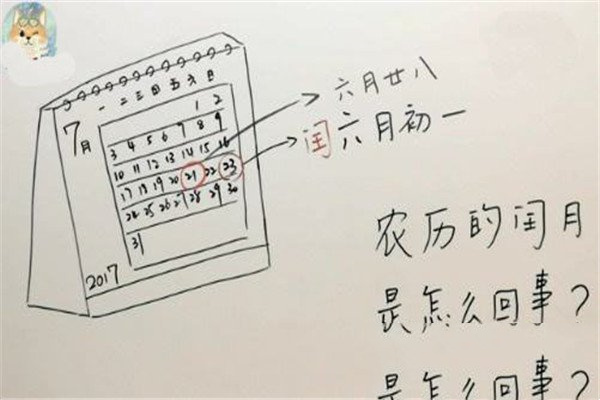 一 二 三 四 五 六 日
7月
1 2
3 4 5 6 7 8 9
10 11 12 13 14 15 16
17 18 19 20 21 22 23
24 25 26 27 28 29 30
31
2017
六月廿八
闰六月初一
农历的闰月
是怎么回事?
是怎么回事?